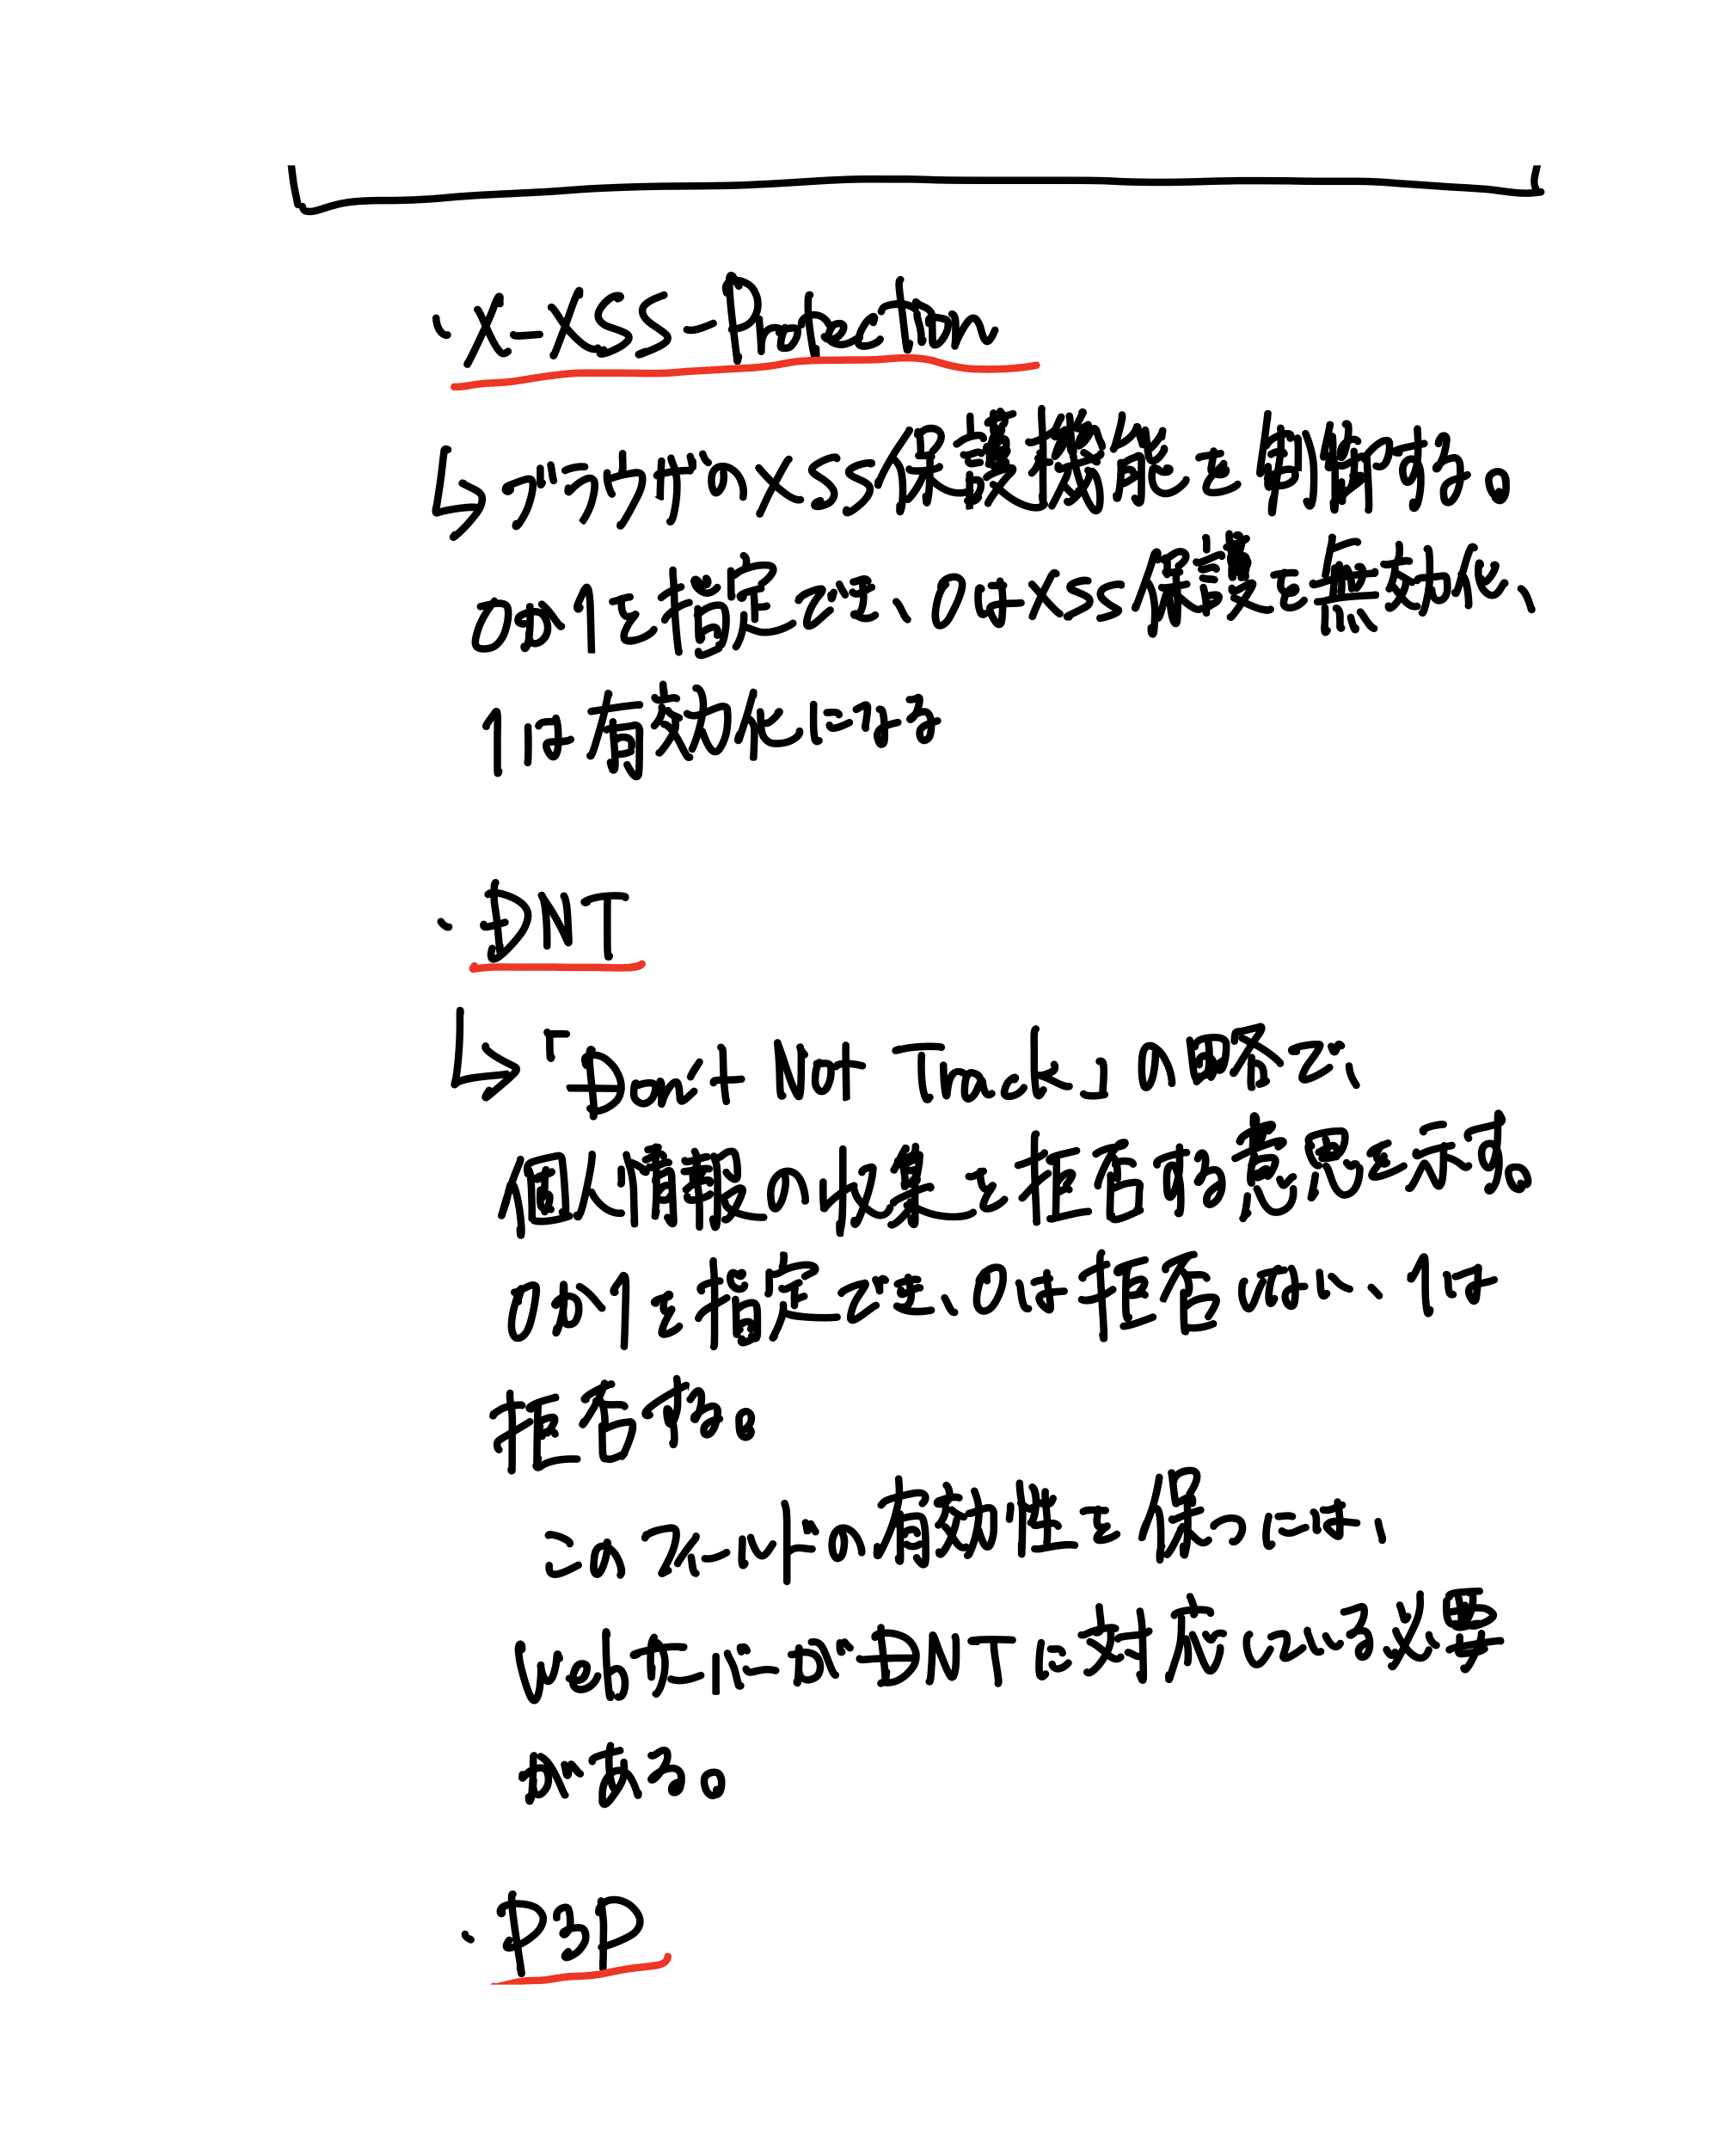 ・X-XSS-Protection
↳ブラウザのXSS保護機能を制御する。
0か1を指定でき、0はXSS保護を無効化、
1は有効化になる
・DNT
↳「Don't Not Track」の略で、
個人情報の収集を拒否する意思を示す。
0か1を指定でき、0は拒否しない、1は
拒否する。
このフィールドの有効性を保つには、
WebサーバーがDNTに対応している必要
がある。
・P3P